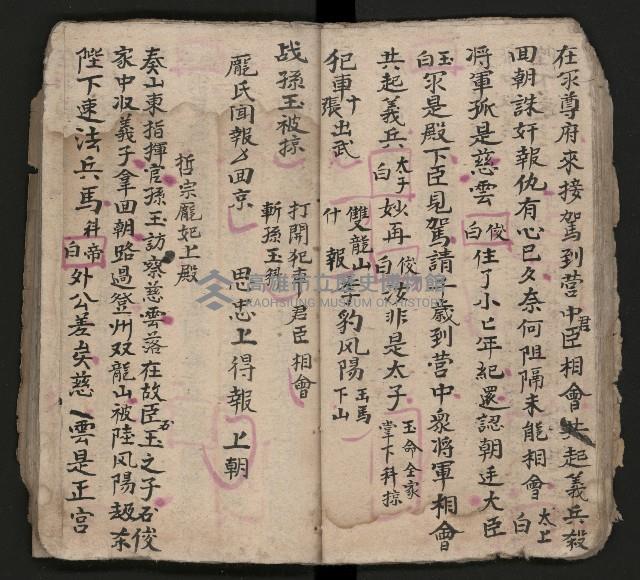 在求尊府來接駕到营中君臣相會共起義兵殺
回朝誅奸報仇有心已久奈何阻隔未能相會 太上白
將軍孤是慈雲 俊白 住了小亡年紀還認朝廷大臣
玉白 求是殿下臣見駕請千歲到营中衆將軍相會
共起義兵 太子白 妙再 俊白 非是太子 玉命全家掌下科掠
犯車十張出武 雙龍山什報 豹风陽 玉馬下山
战孫玉被掠 打開犯車君臣相會斬孫玉科
龐氏聞報夕回京 思志上得報 上朝
哲宗龐妃上殿
奏山東指揮官孫玉訪察慈雲落在故臣石玉之子石俊
家中収義子拿回朝路過登州双龍山被陸风陽趐东
陛下速法兵馬科 帝白 外公差矣慈雲是正宫
高雄市立歷史博物館
KAOHSIUNG MUSEUM OF HISTORY